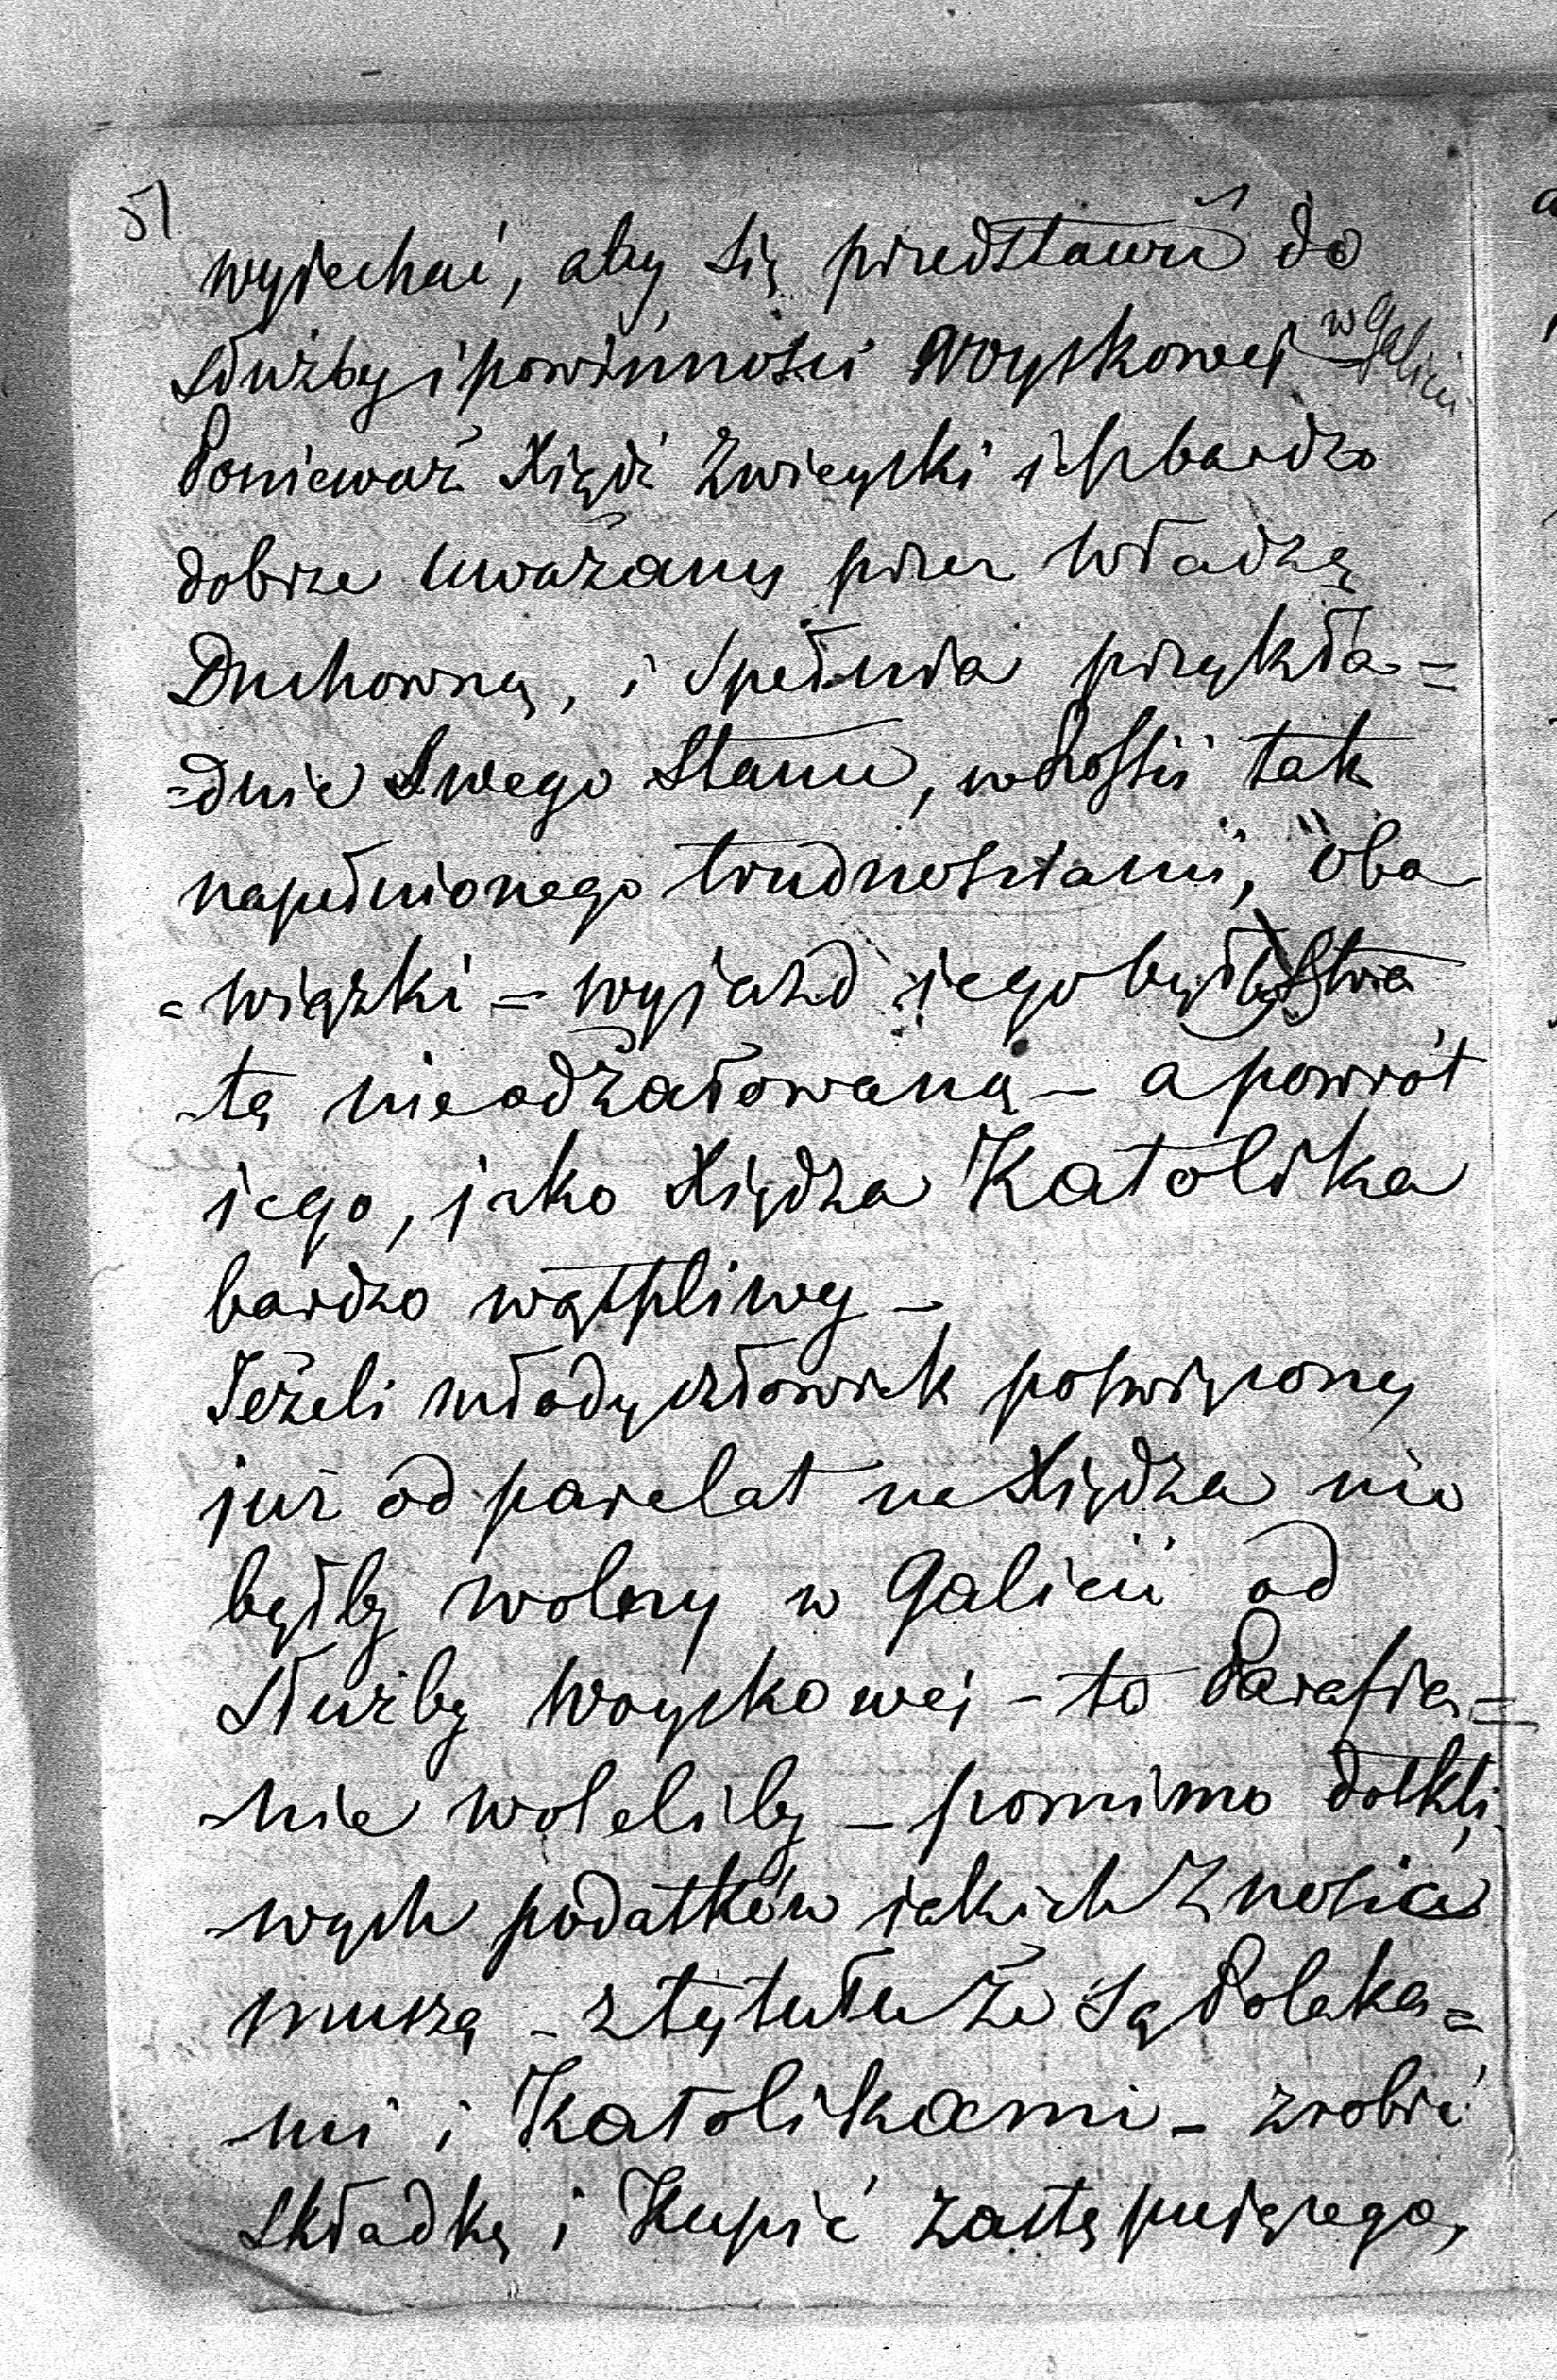 51
wyiechać, aby się przedstawić do
służby i powinności woyskowej w Galicii
Ponieważ Xiądz Zwieyski jest bardzo
dobrze uważany przez władzą
Duchowną, i spełnia przykła=
=dnie swego stanu, w Rossii tak
napełnionego trudnościami, "oba
=wiązki = wyjazd jego byłby stra
-tą nieodżałowaną - a powrót
iego, jako Xiędza Katolika
bardzo wątpliwy -
Jeżeli młody człowiek poświęcony
już od parę lat na Xiędza nie
byłby wolny w Galicii od
służby woyskowej - to Parafia=
-nie woleliby - pomimo dotkli
-wych podatków jakich znosić
muszą - z tytułu że są Polaka=
-mi i Katolikami - zrobić
składkę i Kupić zastępującego,